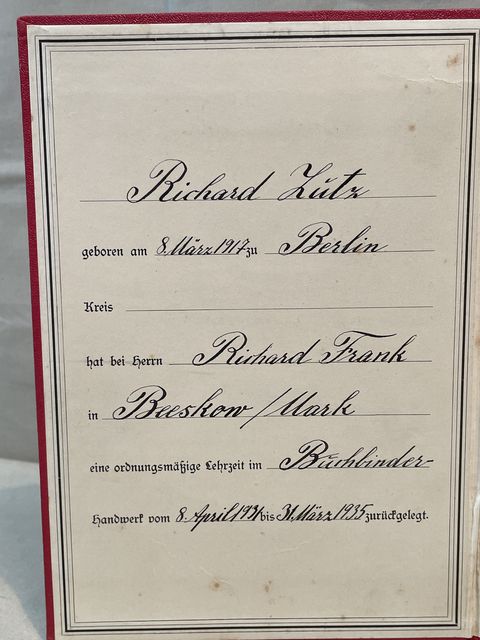 Richard Lutz
geboren am 8. März 1917 zu Berlin
Kreis
hat bei Herrn Richard Frank
in Beeskow / Mark
eine ordnungsmäßige Lehrzeit im Buchbinder-
Handwerk vom 8. April 1931 bis 31. März 1935 zurückgelegt.